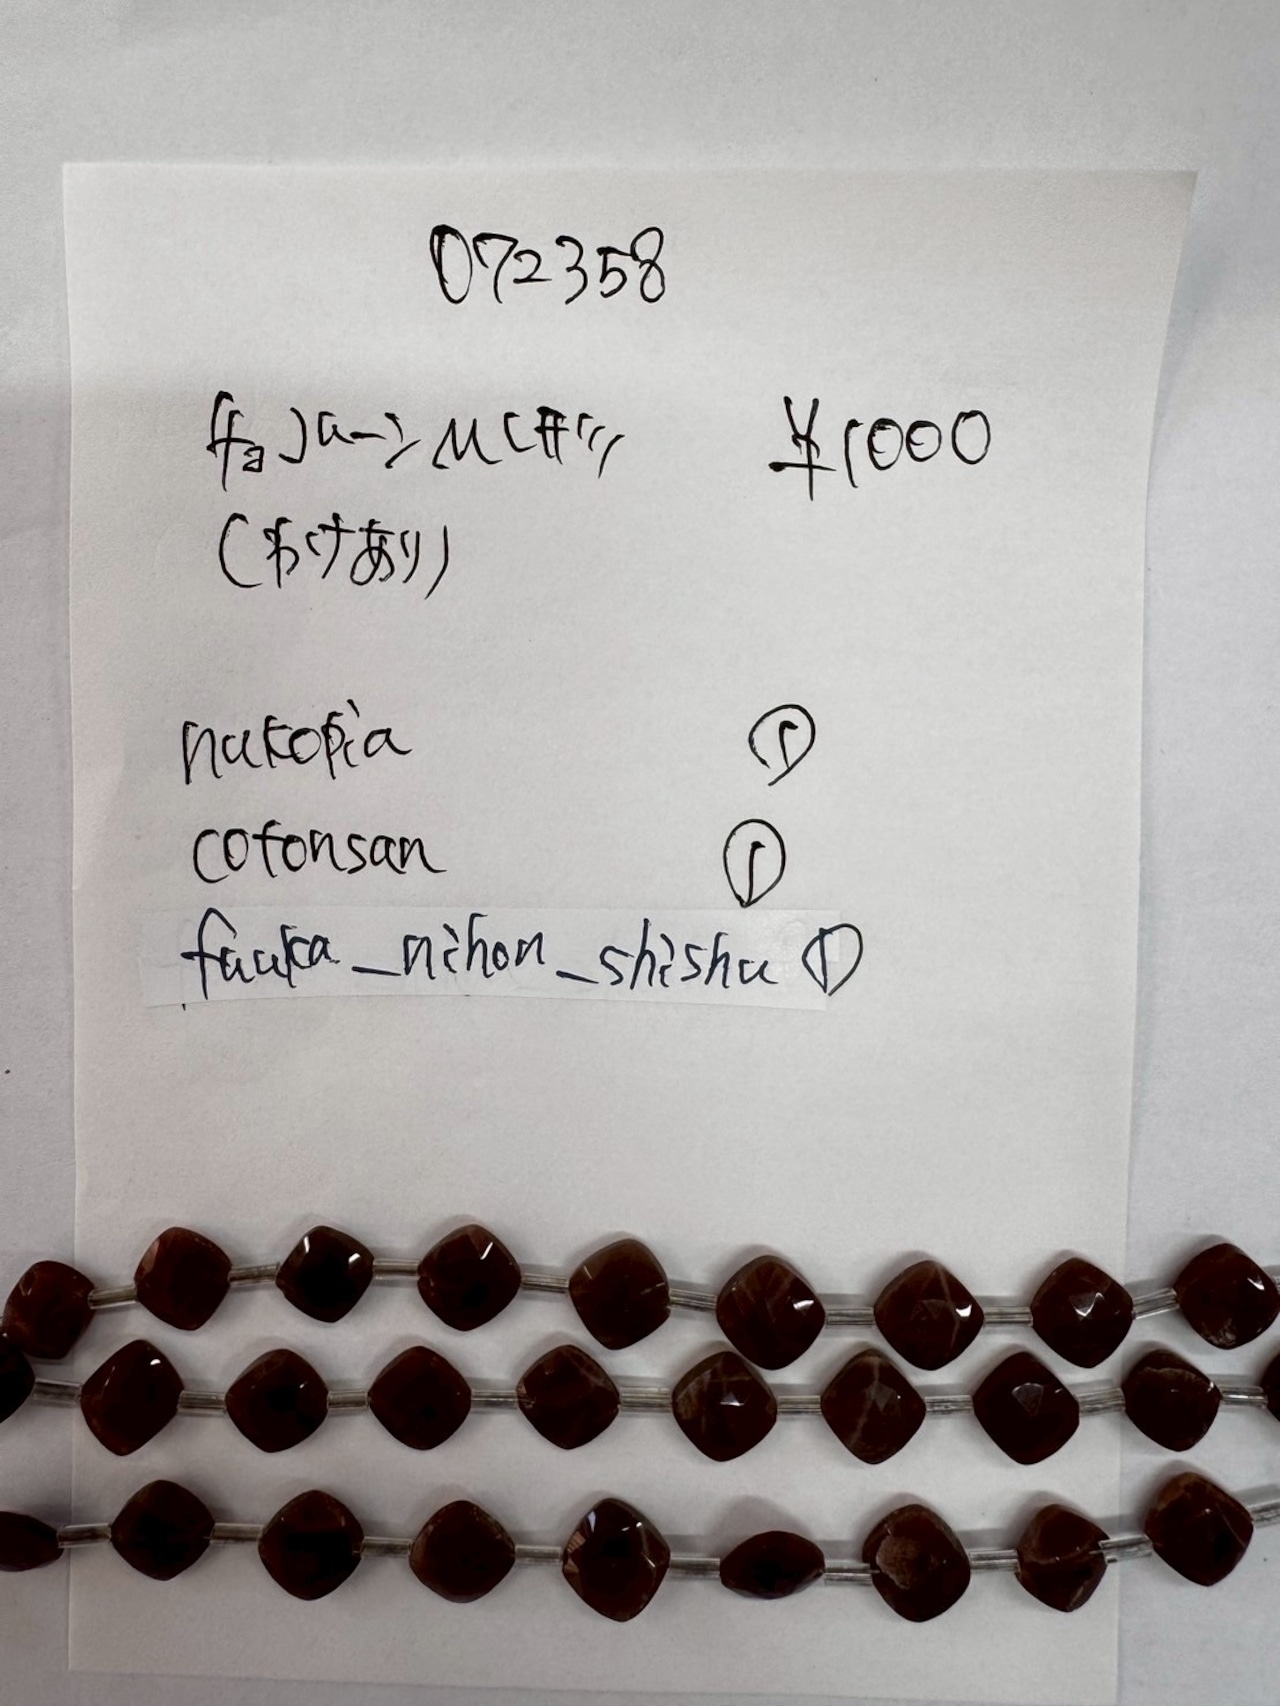 072358
¥1000
(わけあり)
nukopia ①
cotonsan ①
fuuka_nihon_shishu ①